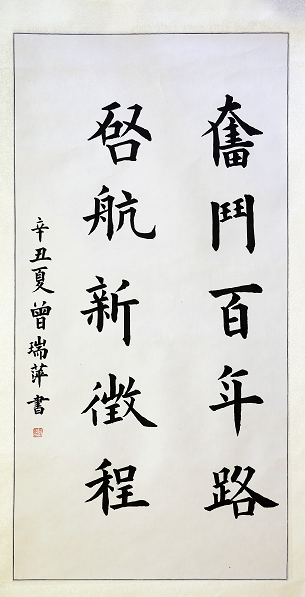 奮鬥百年路
啓航新徵程
辛丑夏曾瑞萍書